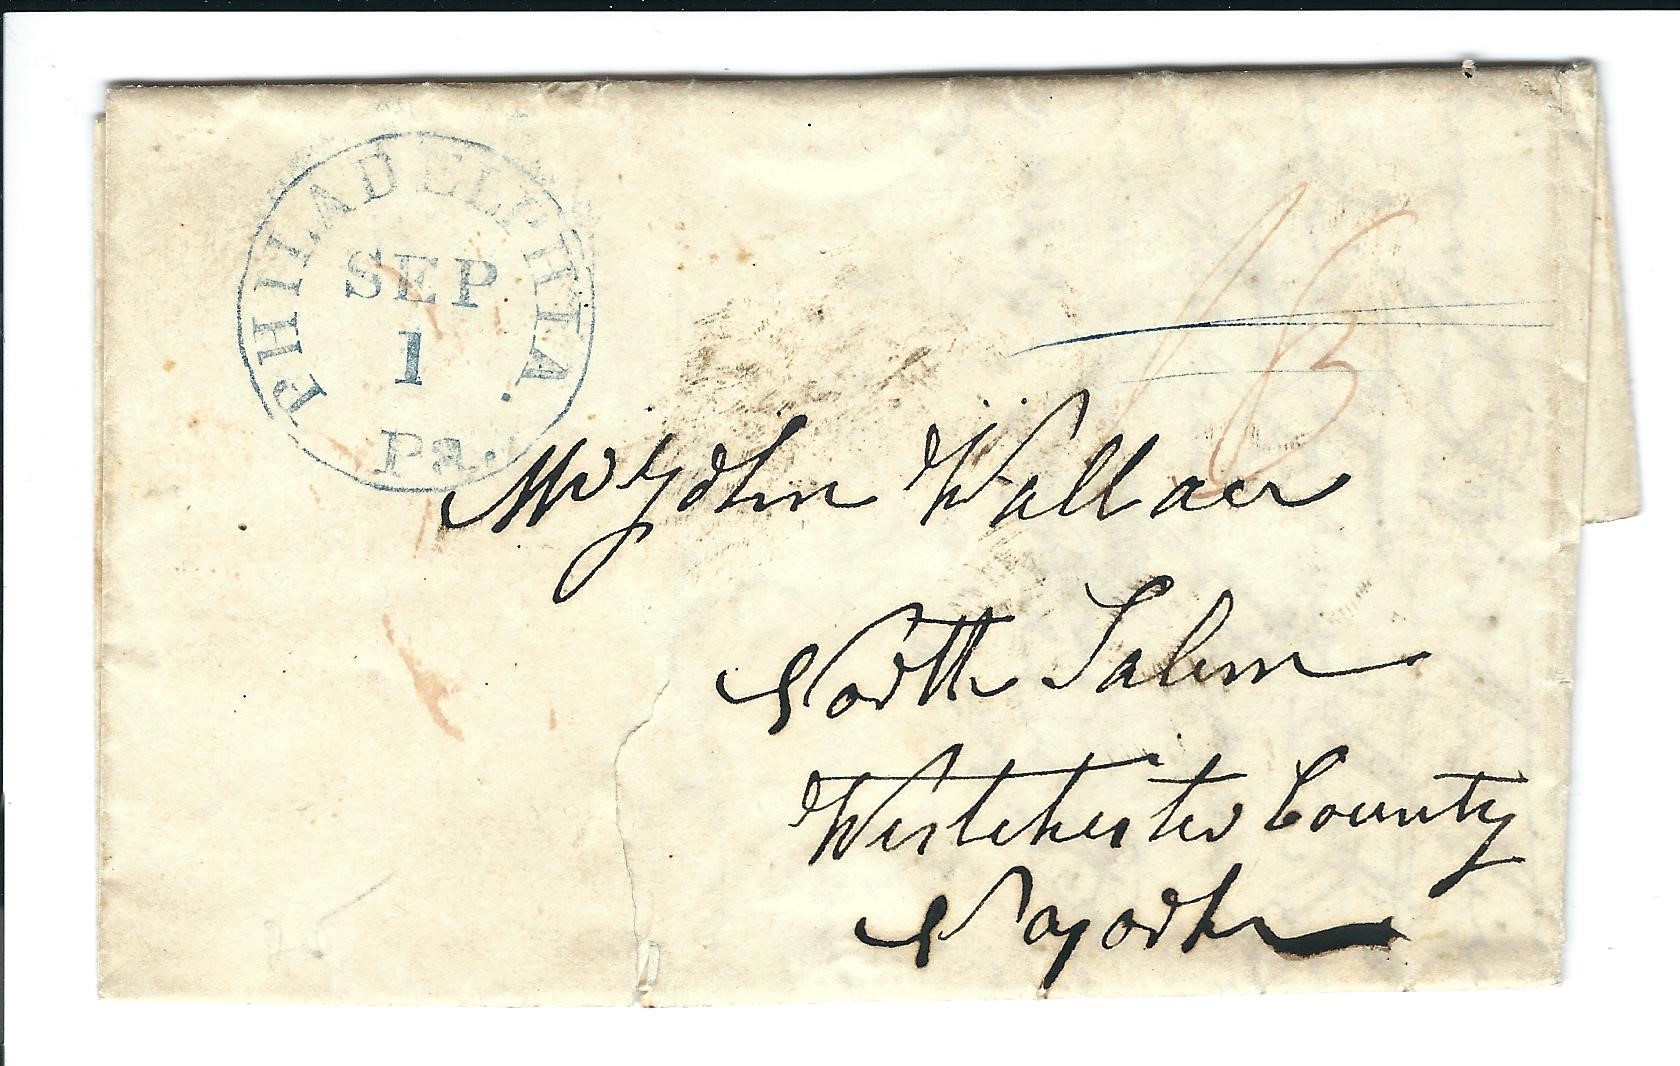 PHILADELPHIA.
SEP
1
Pa.
Mr John Wallace
North Salem
Westchester County
N York